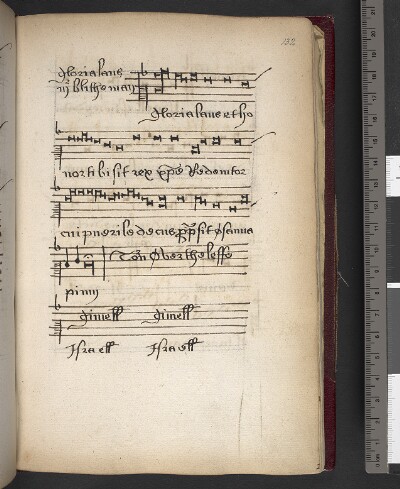 132
gloria laus
mr blitheman
gloria laus et ho
nor tibi sit rex xpe Redemtor
cui puerile decus prpsit osanna
Ton Ov
pium
gimell gimell
Israell Israell